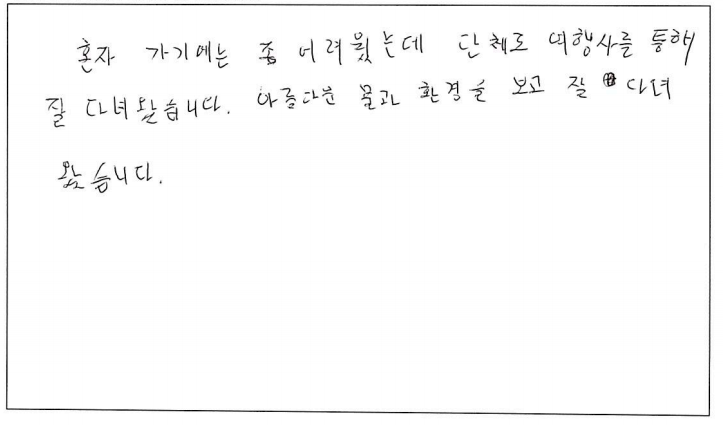 혼자 가기에는 좀 어려웠는데 단체로 여행사를 통해
잘 다녀왔습니다. 아름다운 물과 환경을 보고 잘 다녀
왔습니다.